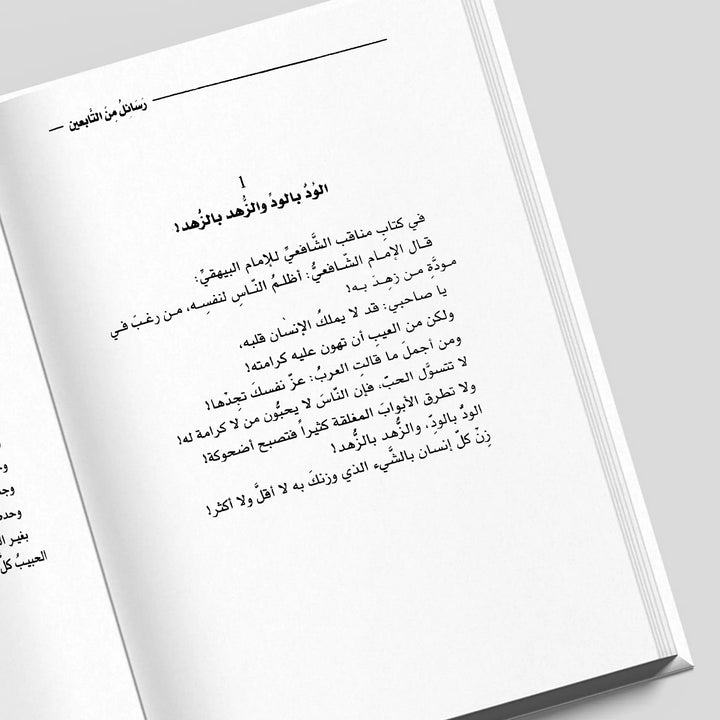 رَسَائِلُ مِنَ التَّابعين
1
الوُدُ بالودِّ والزُّهد بالزُّهد!
في كتابِ مناقب الشَّافعيِّ للإمام البيهقيِّ:
قـال الإمـام الشّـافعيُّ: أظلـمُ النّـاسِ لنفسِـه، مـن رغـبَ فـي
مـودَّةِ مـن زهِـدَ بـه!
يا صاحبي: قد لا يملكُ الإنسان قلبه،
ولكن من العيبِ أن تهون عليه كرامته!
ومن أجملَ ما قالتِ العربُ: عزّ نفسكَ تجِدْها!
لا تتسوَّل الحبّ، فإن النّاسَ لا يحبُّون من لا كرامة له!
ولا تطرق الأبوابَ المغلقة كثيراً فتصبح أضحوكة!
الودُّ بالودِّ، والزُّهد بالزُّهد!
زِنّ كلّ إنسان بالشَّيء الذي وزنكَ به لا أقلَّ ولا أكثر!
وحده
بغير
الحبيبُ كلَّ